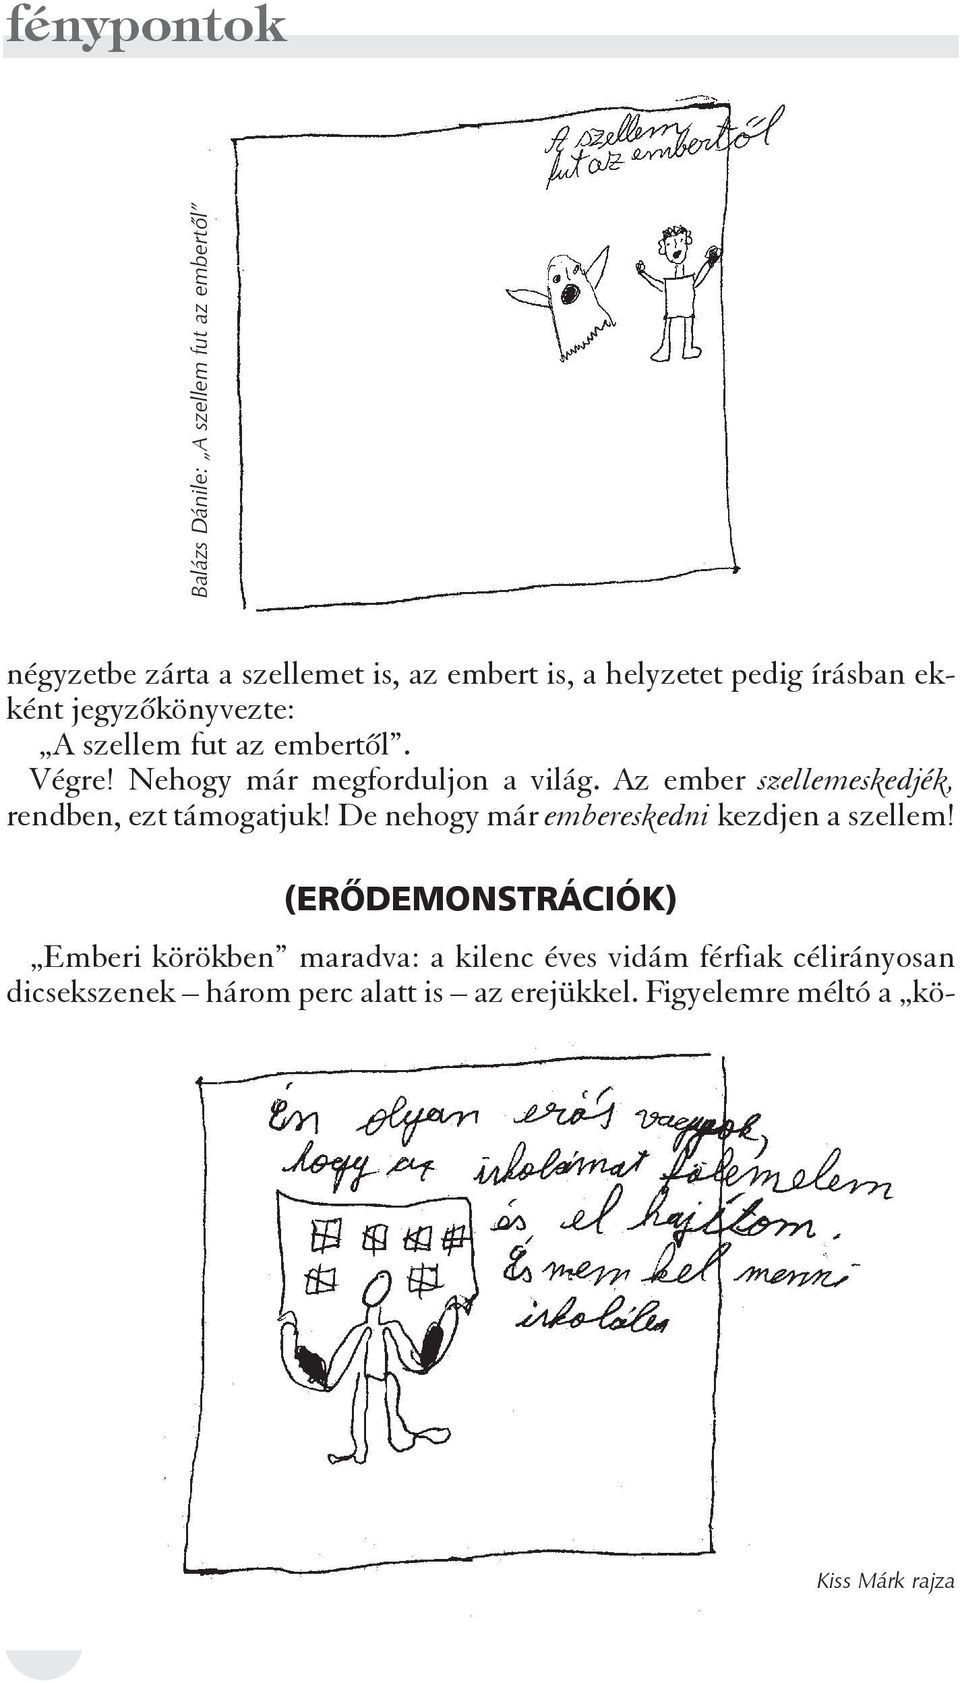 fénypontok
A szellem
fut az embertől
Balázs Dánile: „A szellem fut az embertől”
négyzetbe zárta a szellemet is, az embert is, a helyzetet pedig írásban ek-
ként jegyzőkönyvezte:
„A szellem fut az embertől”.
Végre! Nehogy már megforduljon a világ. Az ember szellemeskedjék,
rendben, ezt támogatjuk! De nehogy márembereskedni kezdjen a szellem!
(ERŐDEMONSTRÁCIÓK)
„Emberi körökben” maradva: a kilenc éves vidám férfiak célirányosan
dicsekszenek – három perc alatt is – az erejükkel. Figyelemre méltó a „kö-
Én olyan erős vagyok,
hogy az iskolámat fölemelem
és el hajítom.
És nem kel menni
iskolába
Kiss Márk rajza